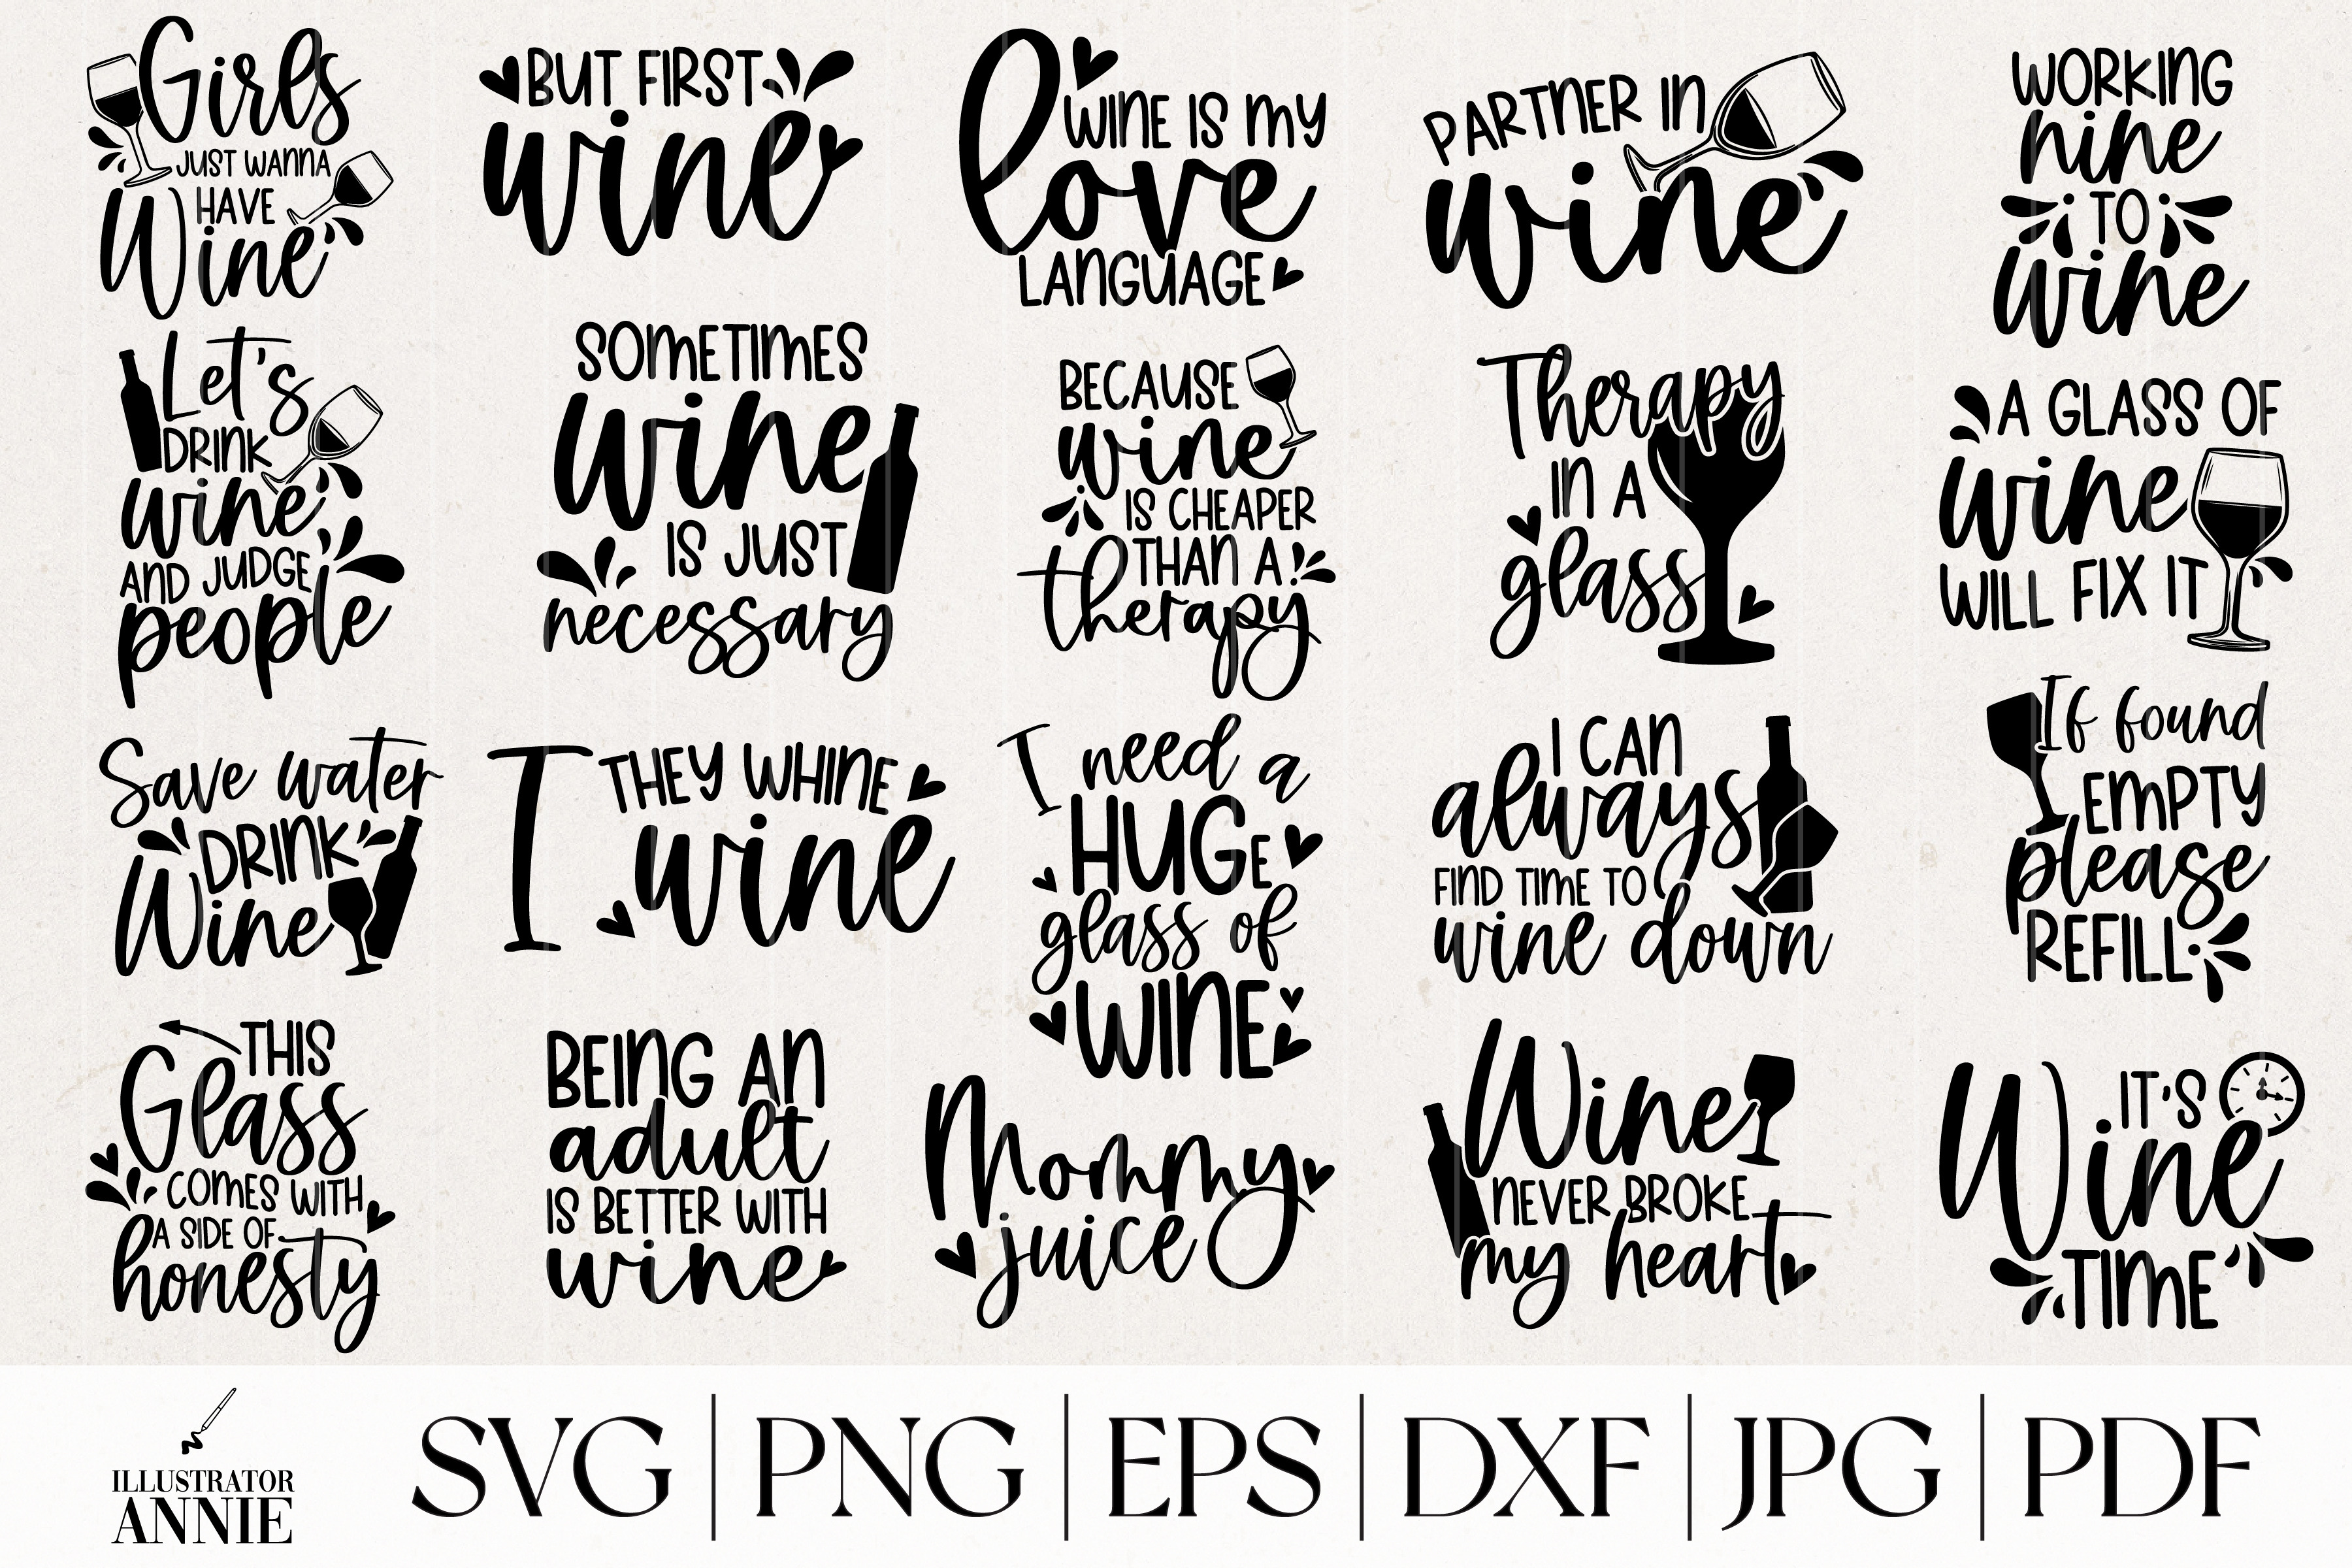 Girls
JUST WANNA
HAVE
Wine
BUT FIRST
wine
WINE IS MY
love
LANGUAGE
PARTNER IN
wine
WORKING
nine
TO
wine
Let's
DRINK
wine
AND JUDGE
people
SOMETIMES
wine
IS JUST
necessary
BECAUSE
wine
IS CHEAPER
THAN A
therapy
Therapy
IN A
glass
A GLASS OF
wine
WILL FIX IT
Save water
DRINK
Wine
THEY WHINE
I wine
I need a
HUGE
glass of
WINE
I CAN
always
FIND TIME TO
wine down
If found
EMPTY
please
REFILL
THIS
Glass
COMES WITH
A SIDE OF
honesty
BEING AN
adult
IS BETTER WITH
wine
Mommy
juice
Wine
NEVER BROKE
my heart
IT'S
Wine
TIME
ILLUSTRATOR
ANNIE
SVG | PNG | EPS | DXF | JPG | PDF